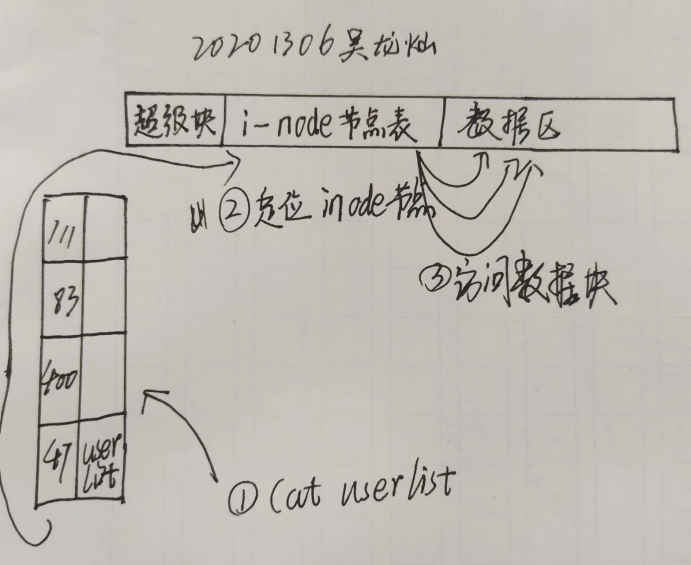 20201306吴龙灿
超级块 i-node节点表 数据区
②定位inode节点
③访问数据块
111
83
400
47 userlist
①Cat userlist